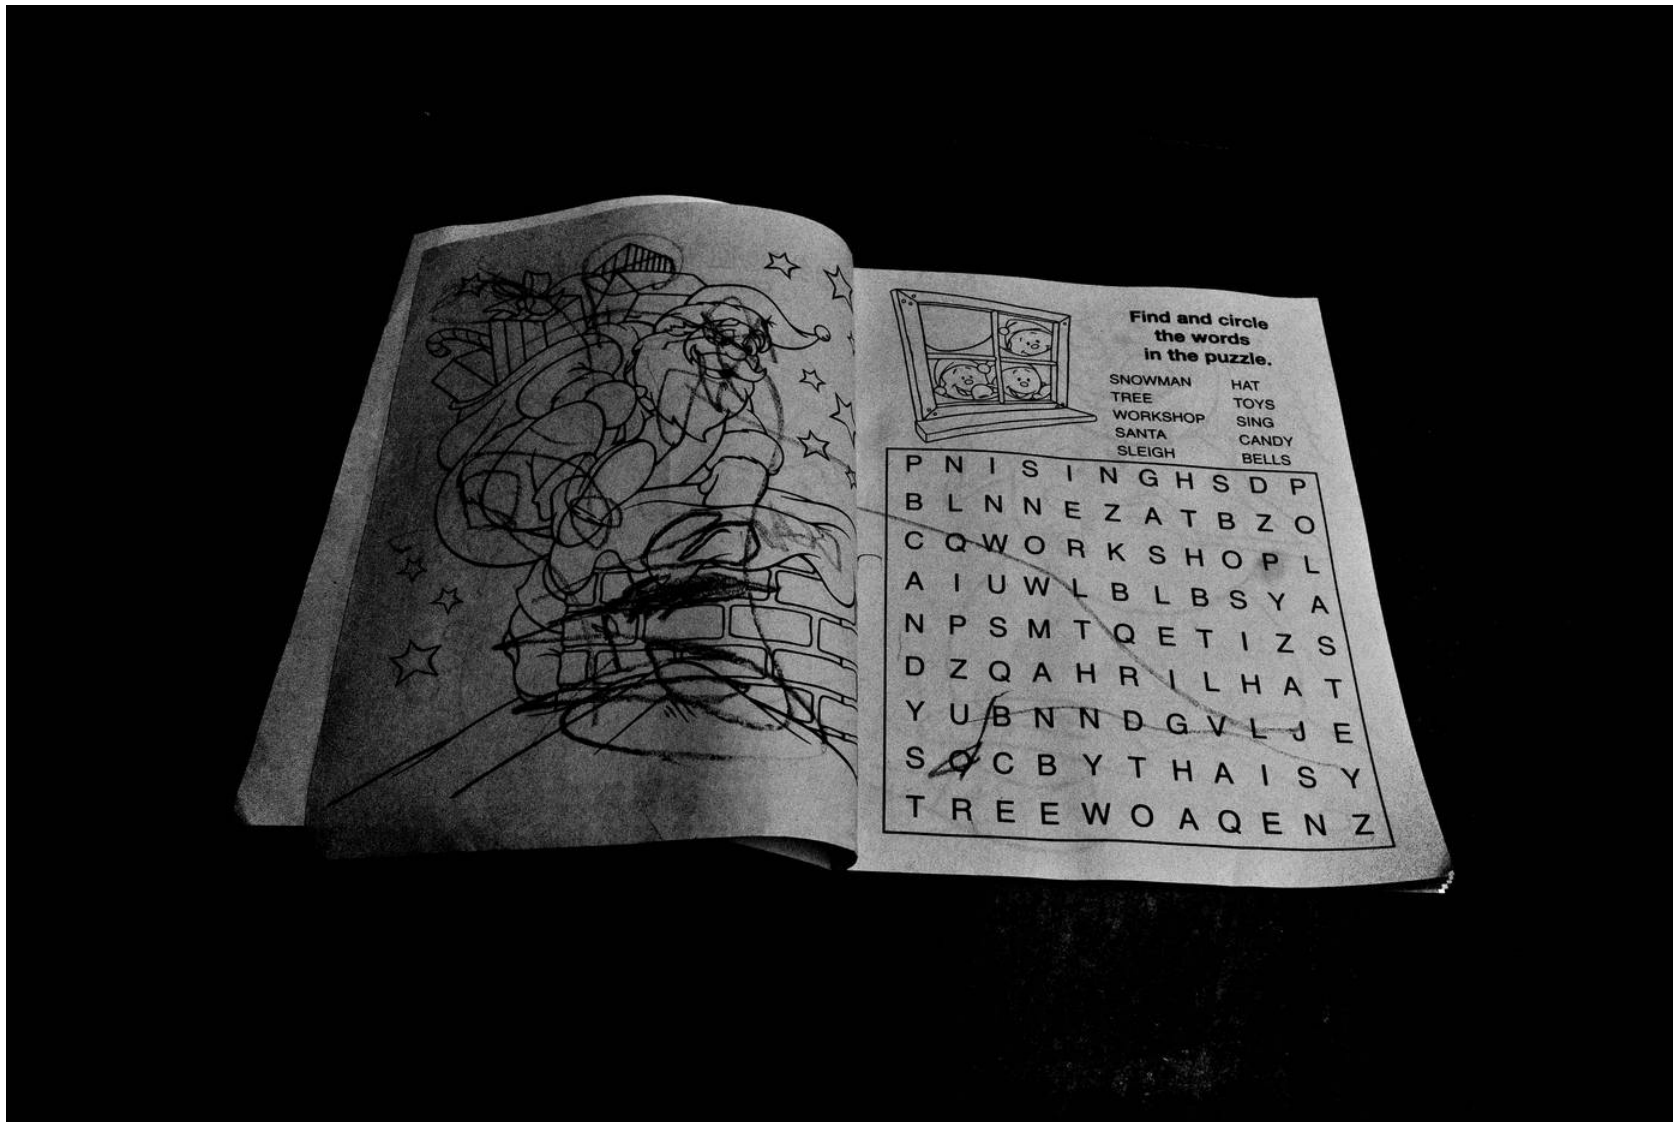 Find and circle
the words
in the puzzle.
SNOWMAN HAT
TREE TOYS
WORKSHOP SING
SANTA CANDY
SLEIGH BELLS
P N I S I N G H S D P
B L N N E Z A T B Z O
C Q W O R K S H O P L
A I U W L B L B S Y A
N P S M T Q E T I Z S
D Z Q A H R I L H A T
Y U B N N D G V L J E
S Q C B Y T H A I S Y
T R E E W O A Q E N Z